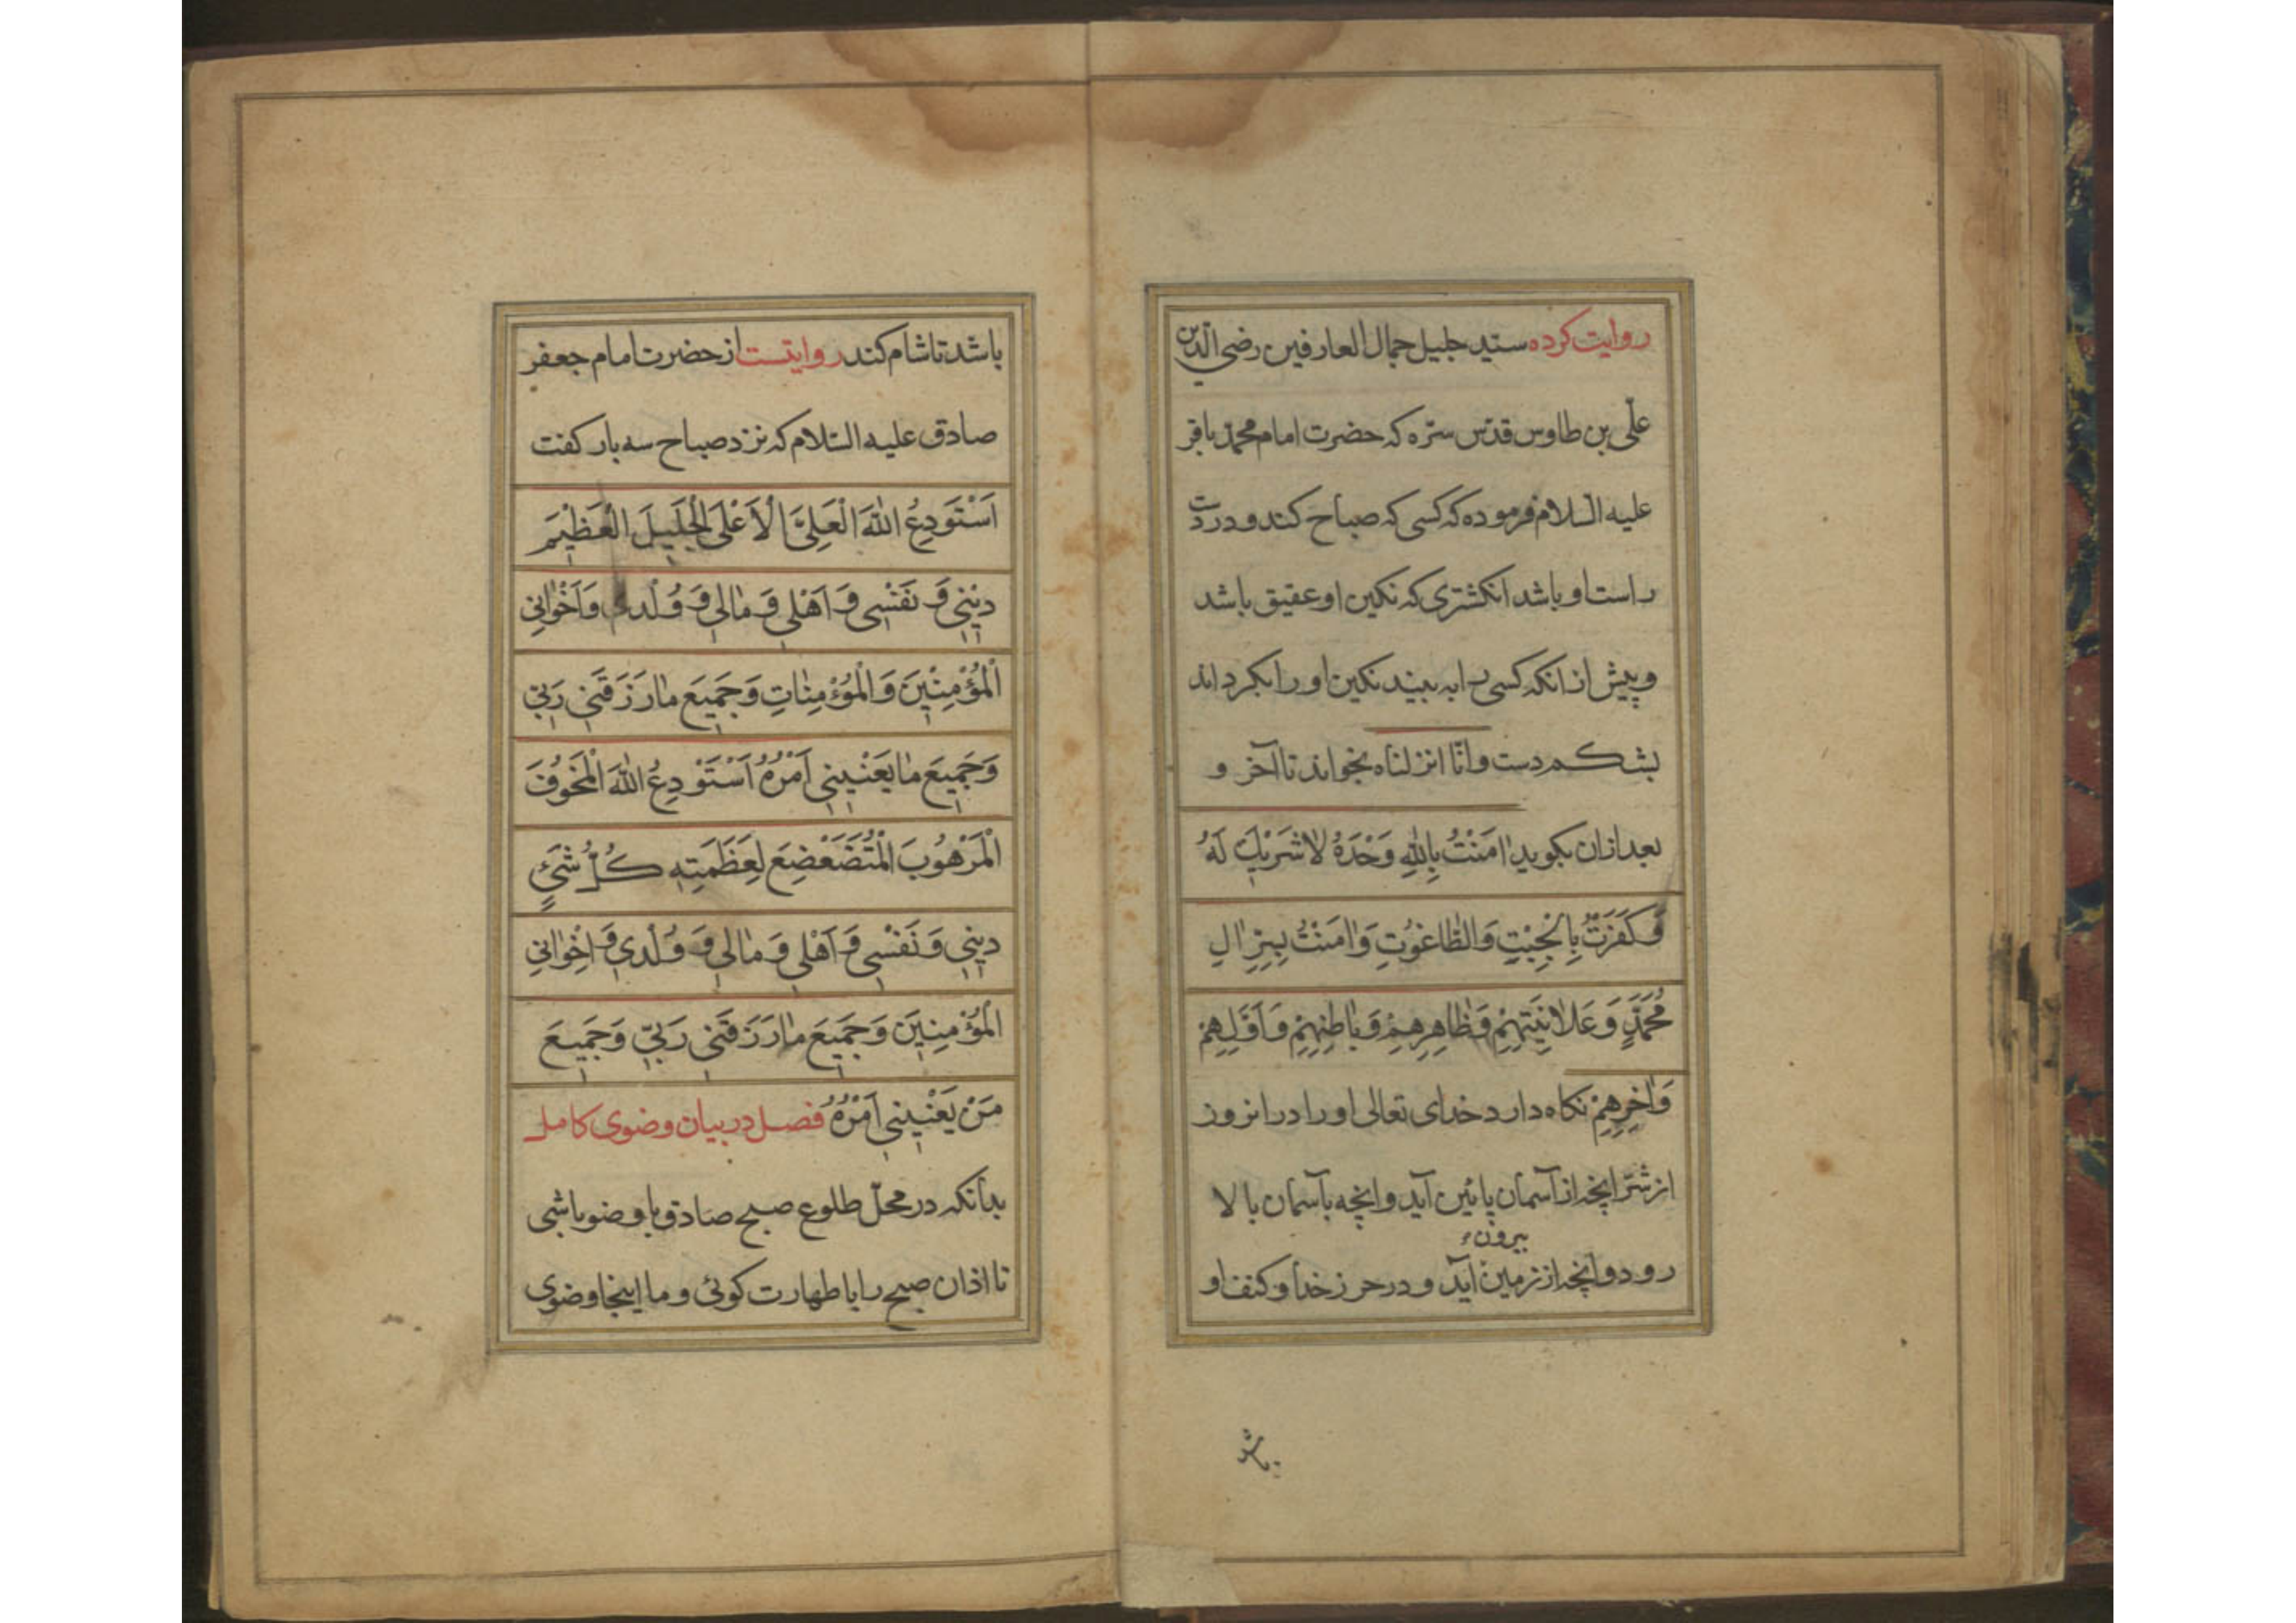 روایت کرده سید جلیل جمال العارفین رضی الدین
علی بن طاوس قدس سره که حضرت امام محمد باقر
علیه السلام فرموده که کسی که صباح کند و در دست
راست او باشد انکشتری که نکین او عقیق باشد
و پیش از انکه کسی را به بیند نکین او را بکرداند
بشکم دست و انّا انزلناه بخواند تا آخر و
بعد ازان بکوید اٰمَنْتُ بِاللّٰهِ وَحْدَهُ لاٰ شَرِیْكَ لَهُ
وَ کَفَرْتُ بِالْجِبْتِ وَالطّٰاغُوْتِ وَ اٰمَنْتُ بِسِرِّ اٰلِ
مُحَمَّدٍ وَ عَلاٰنِیَتِهِمْ وَ ظٰاهِرِهِمْ وَ بٰاطِنِهِمْ وَ اَوَّلِهِمْ
وَ اٰخِرِهِمْ نکاه دارد خدای تعالی او را در انروز
از شرّ انچه از آسمان پائین آید و انچه بآسمان بالا
بیرون
رود و انچه از زمین آید و در حرز خدا و کنف او
باشد
باشد تا شام کند روایتست از حضرت امام جعفر
صادق علیه السّلام که نزد صباح سه بار کفت
اَسْتَوْدِعُ اللّٰهَ الْعَلِیَّ الْاَعْلَی الْجَلِیلَ الْعَظِیْمَ
دِیْنِی وَ نَفْسِی وَ اَهْلِی وَ مٰالِی وَ وُلْدِی وَ اَخْوٰانِی
الْمُؤْمِنِیْنَ وَ الْمُؤْمِنٰاتِ وَ جَمِیعَ مٰا رَزَقَنِی رَبِّی
وَ جَمِیعَ مٰا یَعْنِینِی اَمْرُهُ اَسْتَوْدِعُ اللّٰهَ الْمَخُوْفَ
الْمَرْهُوبَ الْمُتَضَعْضِعَ لِعَظَمَتِهِ کُلُّ شَیْءٍ
دِیْنِی وَ نَفْسِی وَ اَهْلِی وَ مٰالِی وَ وُلْدِی وَ اِخْوٰانِی
الْمُؤْمِنِیْنَ وَ جَمِیعَ مٰا رَزَقَنِی رَبِّی وَ جَمِیْعَ
مَنْ یَعْنِیْنِی اَمْرُهُ فصل در بیان وضوی کامل
بدانکه در محلّ طلوع صبح صادق با وضو باشی
تا اذان صبح را با طهارت کوئی و ما اینجا وضوی